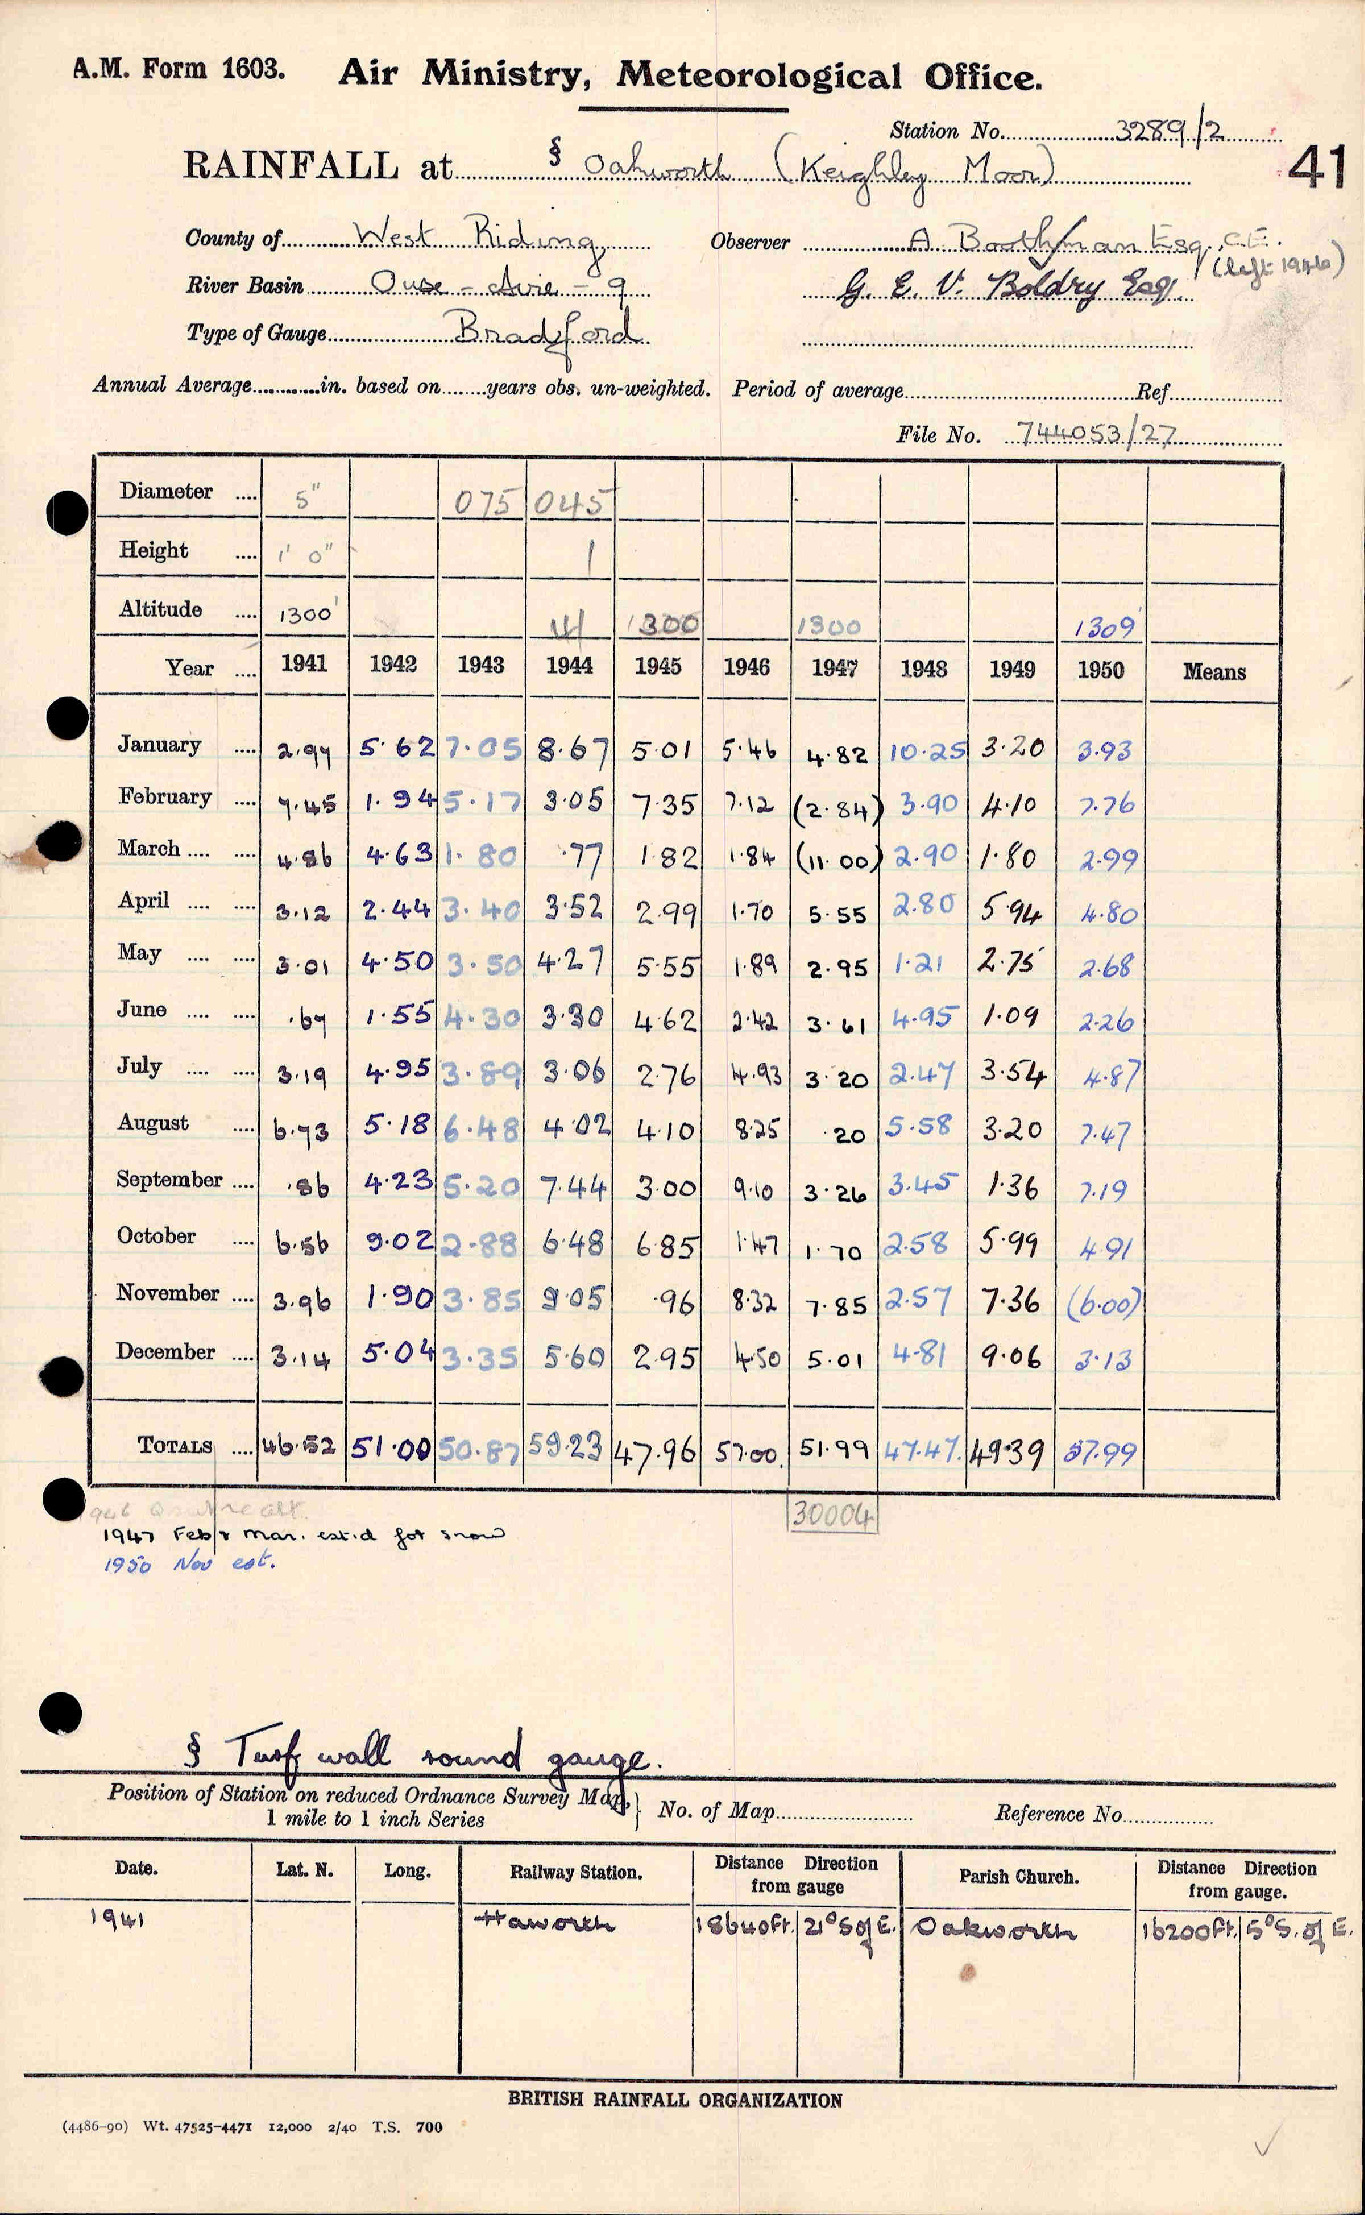 A.M. Form 1603. Air Ministry, Meteorological Office.
Station No. 3289/2
41
RAINFALL at § Oakworth (Keighley Moor)
County of West Riding Observer A Boothman Esq., C.E. (left 1946)
River Basin Ouse - Aire - 9 G. E. V. Boldry Esq.
Type of Gauge Bradford
Annual Average............in. based on........years obs. un-weighted. Period of average Ref.
File No. 744053/27
Diameter .... 5" 075 045
Height .... 1' 0" 1
Altitude .... 1300' 1300 1300 1309'
Year .... 1941 1942 1943 1944 1945 1946 1947 1948 1949 1950 Means
January .... 2.97 5.62 7.05 8.67 5.01 5.46 4.82 10.25 3.20 3.93
February .... 7.45 1.94 5.17 3.05 7.35 7.12 (2.84) 3.90 4.10 7.76
March .... .... 4.86 4.63 1.80 .77 1.82 1.84 (11.00) 2.90 1.80 2.99
April .... .... 3.12 2.44 3.40 3.52 2.99 1.70 5.55 2.80 5.94 4.80
May .... .... 3.01 4.50 3.50 4.27 5.55 1.89 2.95 1.21 2.75 2.68
June .... .... .67 1.55 4.30 3.30 4.62 2.42 3.61 4.95 1.09 2.26
July .... .... 3.19 4.95 3.89 3.06 2.76 4.93 3.20 2.47 3.54 4.87
August .... 6.73 5.18 6.48 4.02 4.10 8.25 .20 5.58 3.20 7.47
September .... .86 4.23 5.20 7.44 3.00 9.10 3.26 3.45 1.36 7.19
October .... 6.56 9.02 2.88 6.48 6.85 1.47 1.70 2.58 5.99 4.91
November .... 3.96 1.90 3.85 9.05 .96 8.32 7.85 2.57 7.36 (6.00)
December .... 3.14 5.04 3.35 5.60 2.95 4.50 5.01 4.81 9.06 3.13
TOTALS .... 46.52 51.00 50.87 59.23 47.96 57.00 51.99 47.47 49.39 57.99
30004
1947 Feb & Mar. est.d for snow
1950 Nov est.
§ Turf wall round gauge.
Position of Station on reduced Ordnance Survey Map, 1 mile to 1 inch Series } No. of Map Reference No.
Date. Lat. N. Long. Railway Station. Distance Direction from gauge Parish Church. Distance Direction from gauge.
1941 Haworth 18640ft. 21° S of E. Oakworth 16200ft. 5° S. of E.
BRITISH RAINFALL ORGANIZATION
(4486-90) Wt. 47525-4471 12,000 2/40 T.S. 700